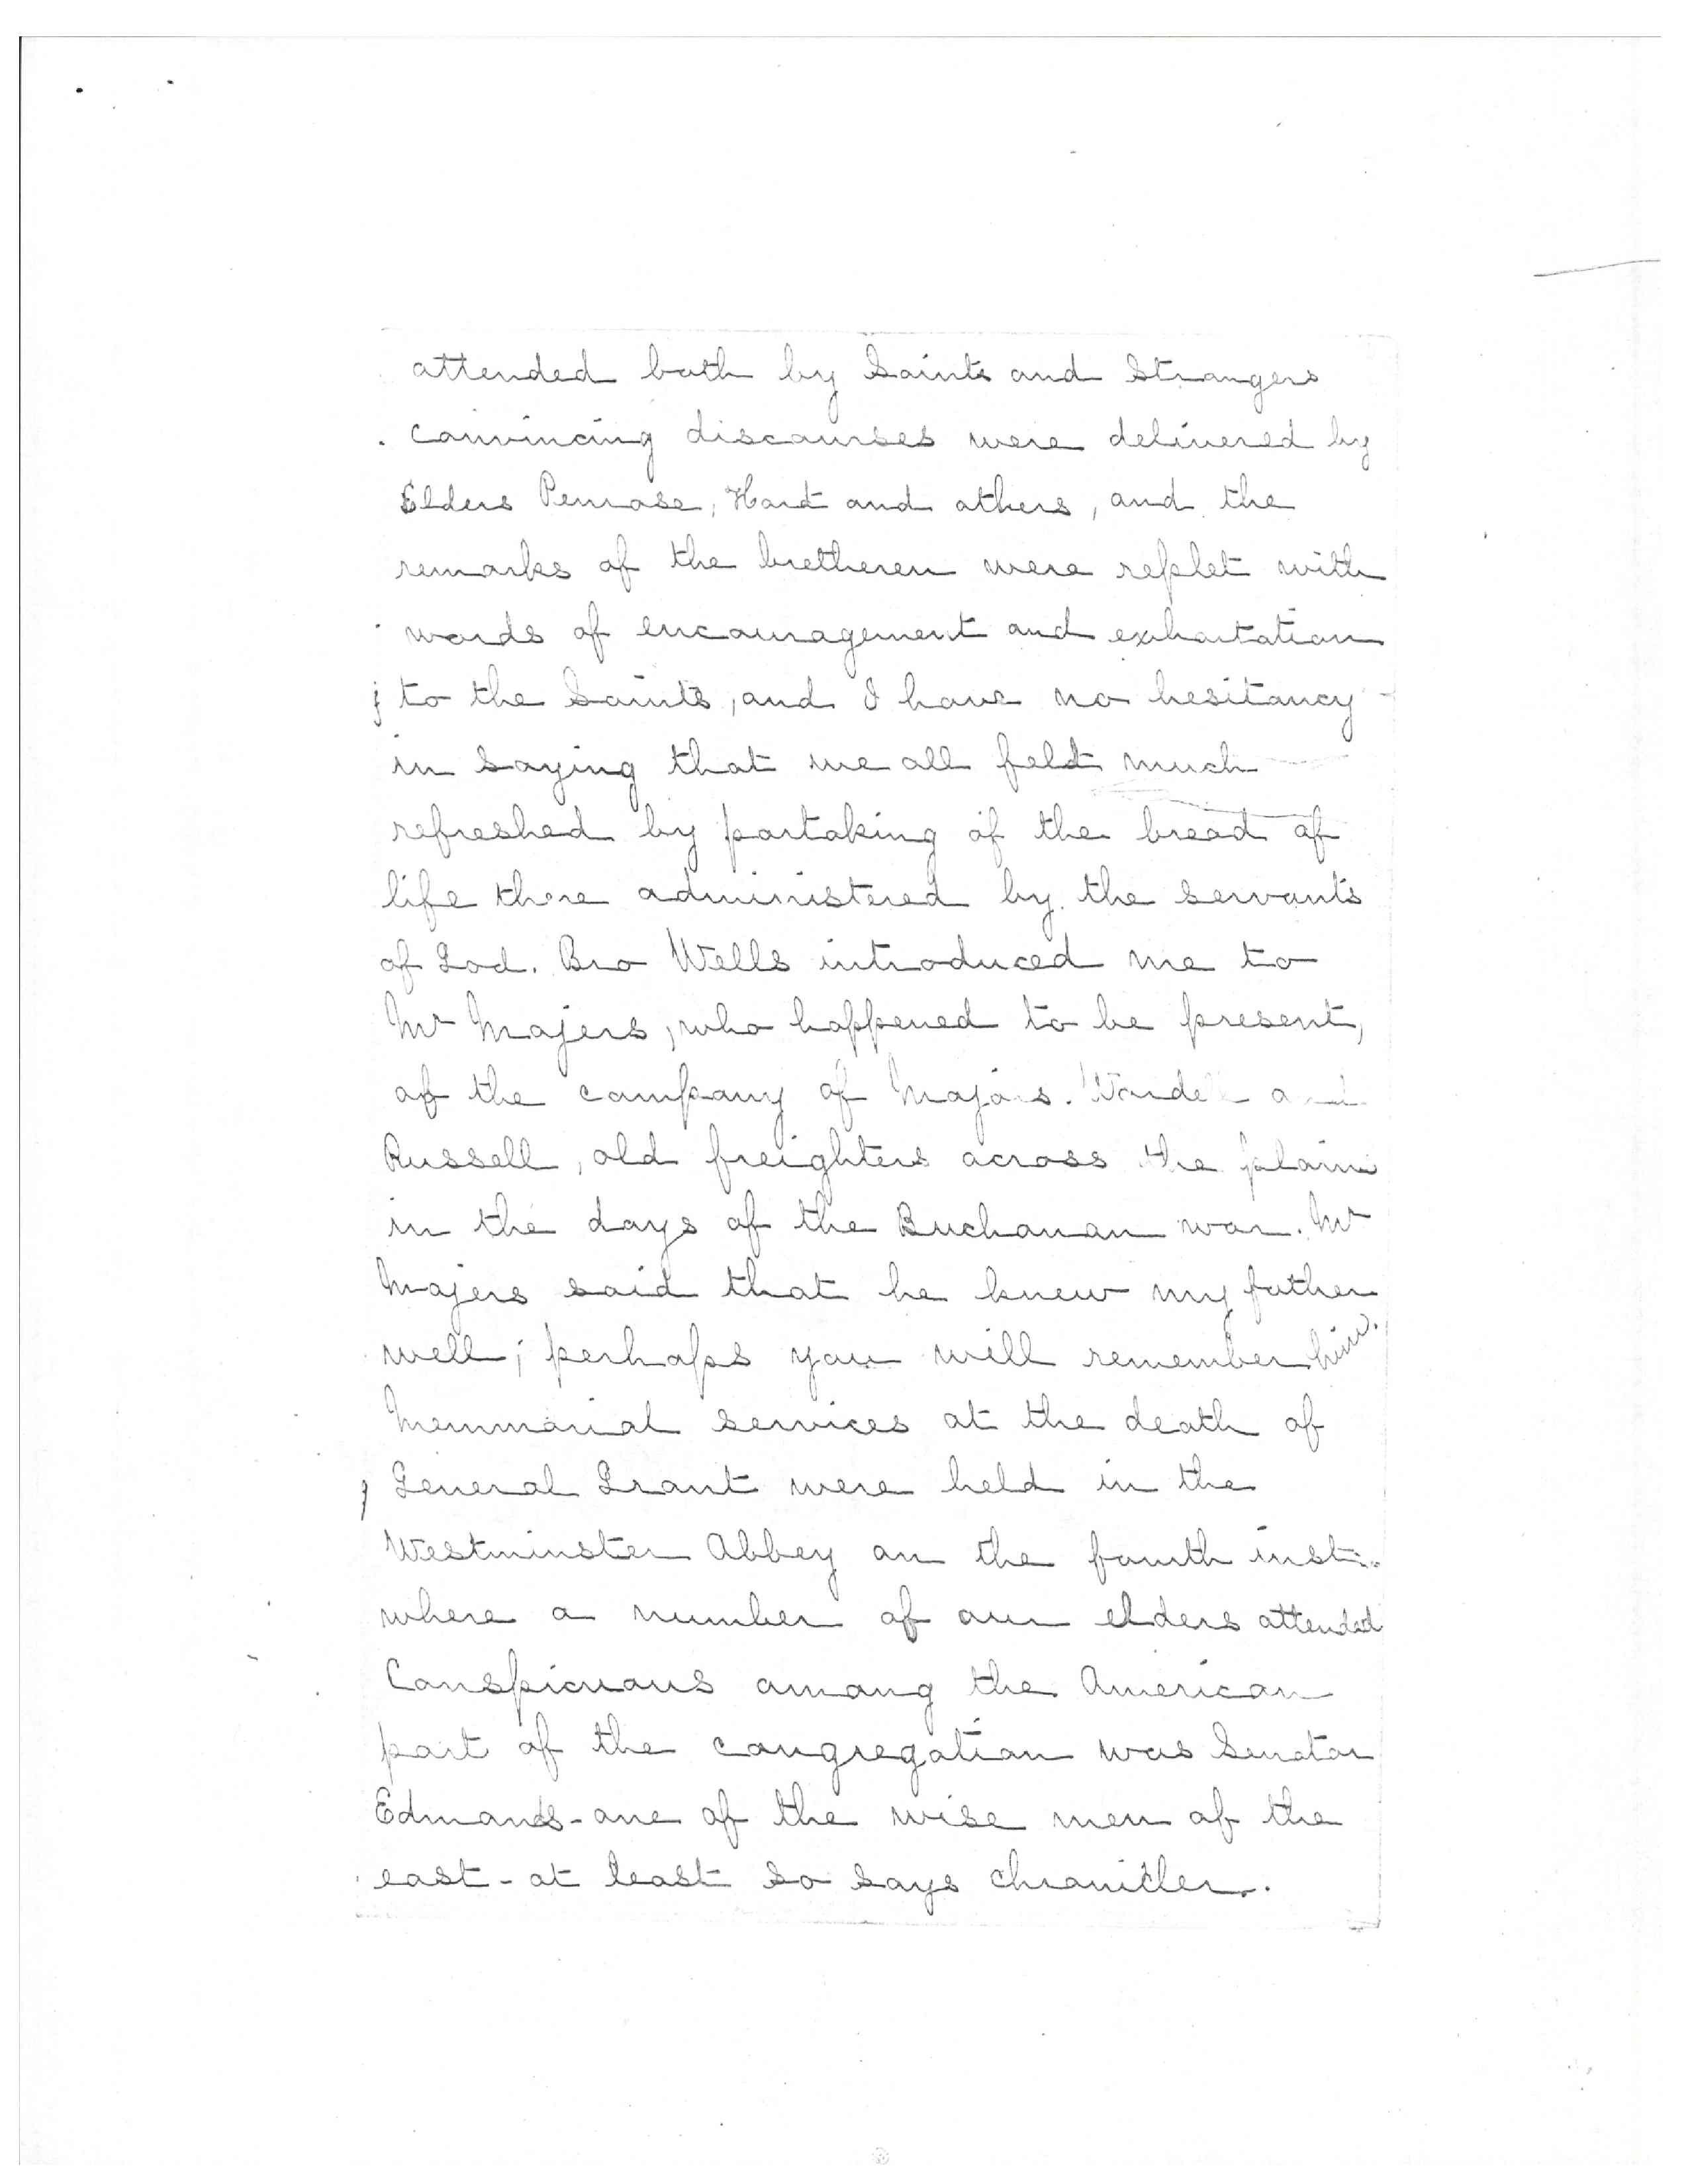 attended both by Saints and Strangers
convincing discourses were delivered by
Elders Penrose, Hart and others, and the
remarks of the bretheren were replet with
words of encouragement and exhortation
to the Saints, and I have no hesitancy
in saying that we all feld much
refreshed by partaking of the bread of
life there administered by the servants
of God. Bro Wells introduced me to
Mr Majers, who happened to be present,
of the company of Majors. and
Russell, old freighters across the plains
in the days of the Buchanan war. Mr
Majers said that he knew my father
well; perhaps you will remember him.
Memmorial services at the death of
General Grant were held in the
Westminster Abbey on the fourth inst.
where a number of our elders attended
Conspicuous among the American
part of the congregation was Senator
Edmands - one of the wise men of the
east - at least so says chronicler.